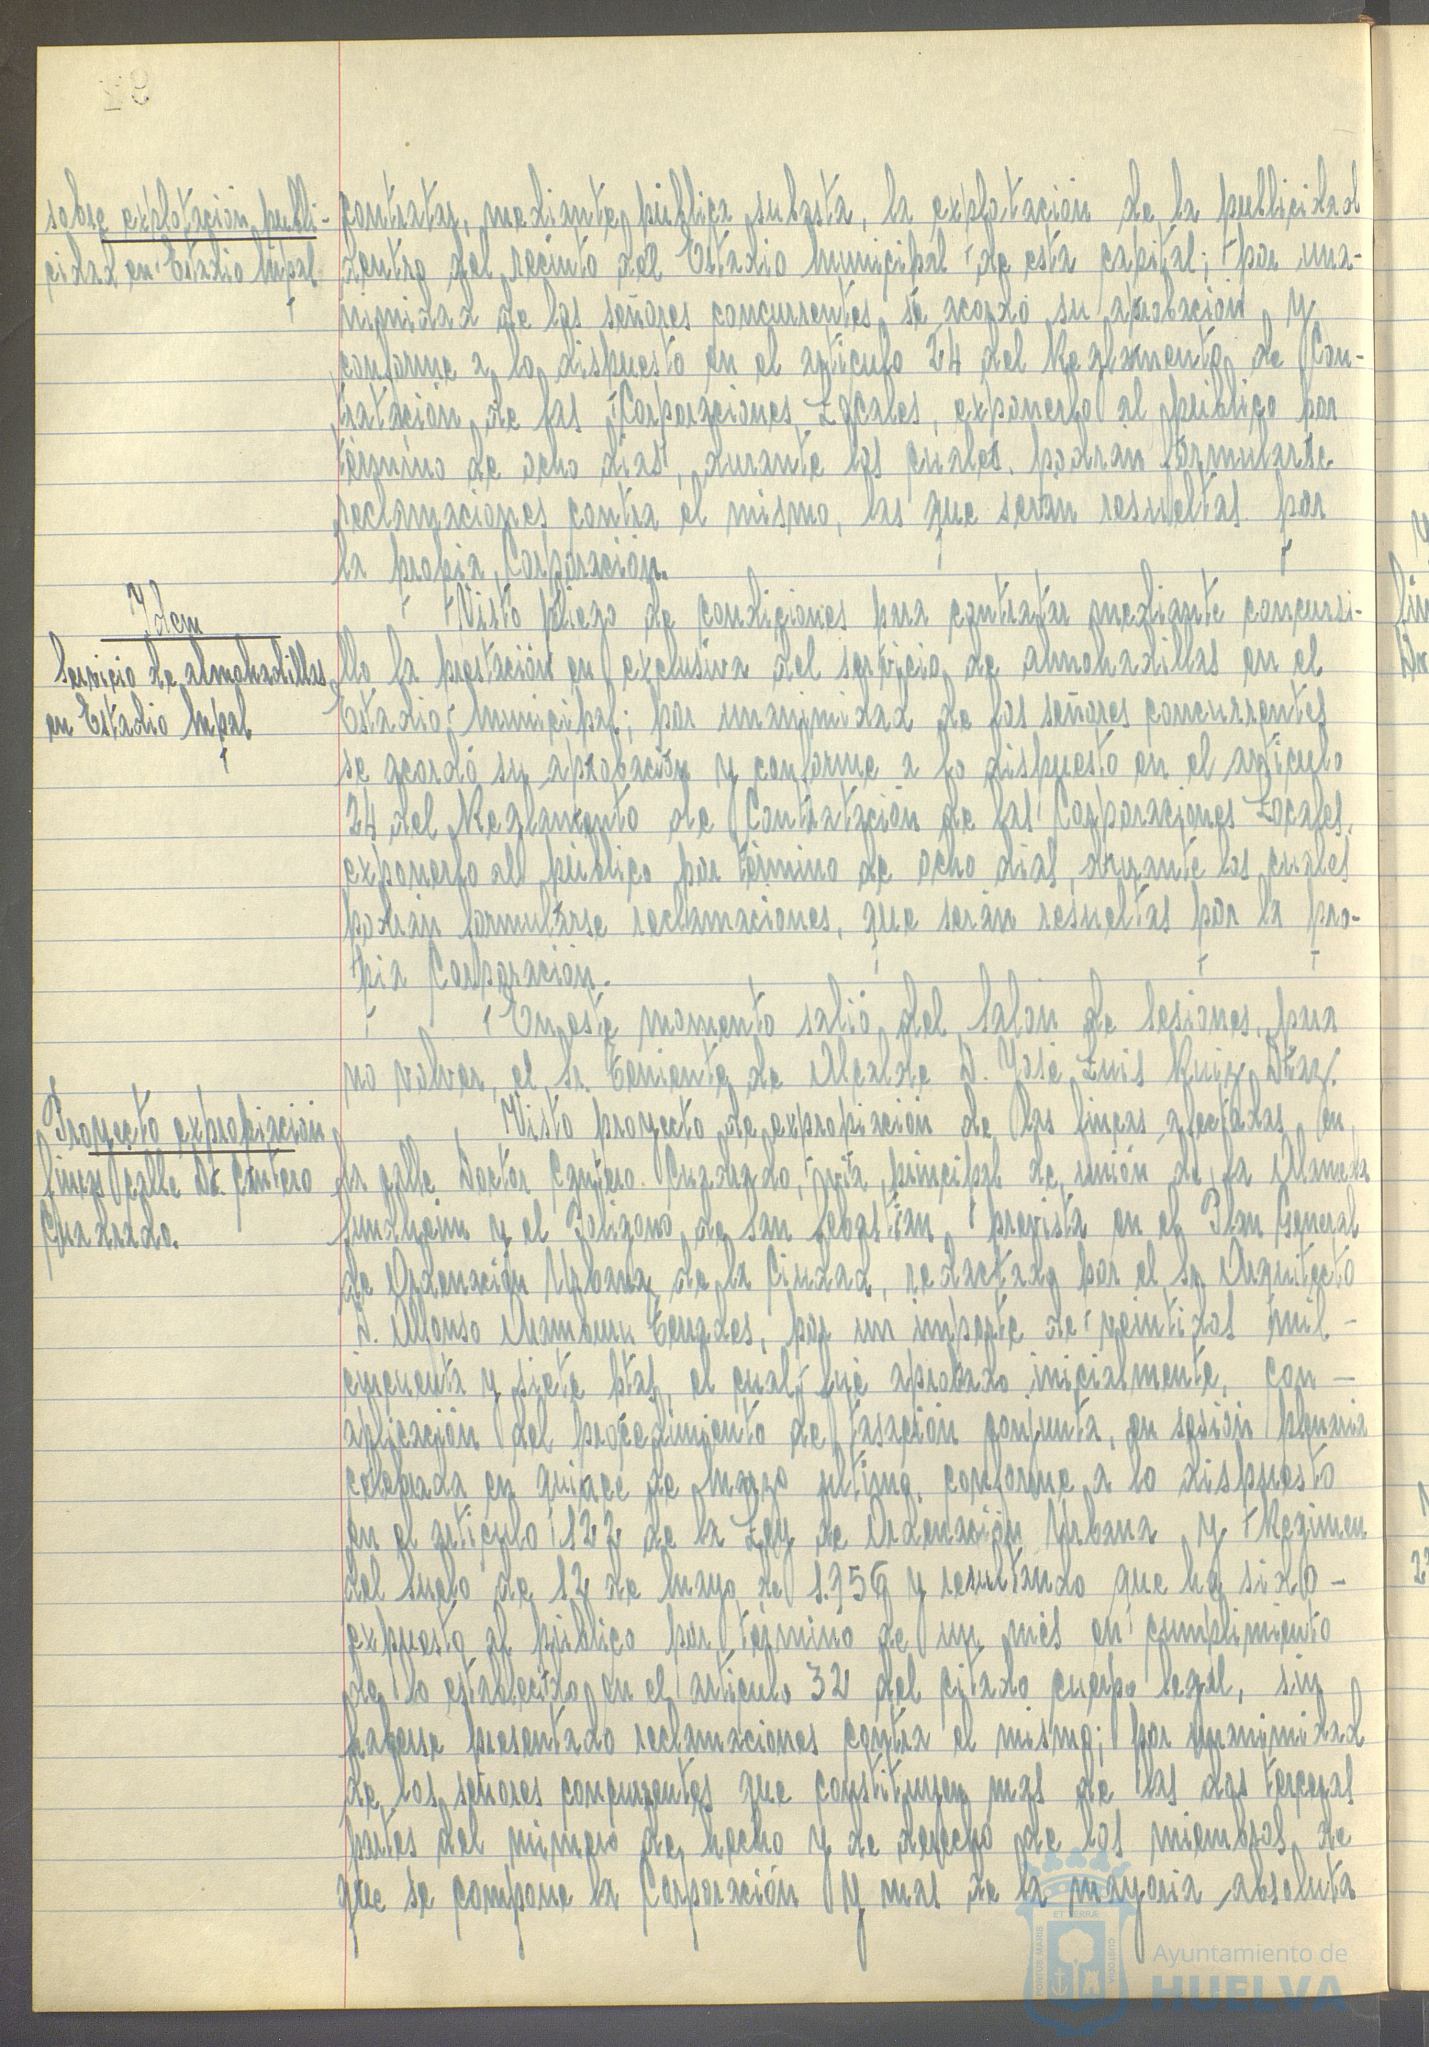 sobre explotación publi-
cidad en Estadio Mpal
contratar, mediante pública subasta, la explotación de la publicidad
dentro del recinto del Estadio Municipal de esta capital; por una-
nimidad de los señores concurrentes se acordó su aprobación y
conforme a lo dispuesto en el artículo 24 del Reglamento de Con-
tratación de las Corporaciones Locales, exponerlo al público por
término de ocho días, durante los cuales podrán formularse
reclamaciones contra el mismo, las que serán resueltas por
la propia Corporación.
Idem
Servicio de almohadillas
en Estadio Mpal
Visto pliego de condiciones para contratar mediante concursi-
llo la prestación en exclusiva del servicio de almohadillas en el
Estadio Municipal; por unanimidad de los señores concurrentes
se acordó su aprobación y conforme a lo dispuesto en el artículo
24 del Reglamento de Contratación de las Corporaciones Locales,
exponerlo al público por término de ocho días, durante los cuales
podrán formularse reclamaciones, que serán resueltas por la pro-
pia Corporación.
En este momento salió del Salón de Sesiones, para
no volver, el Sr. Teniente de Alcalde D. José Luis Ruiz Díaz.
Proyecto expropiación
fincas calle Dr. Cantero
Cuadrado.
Visto proyecto de expropiación de las fincas afectadas en
la calle Doctor Cantero Cuadrado, vía principal de unión de la Alameda
Sundheim y el Polígono de San Sebastián prevista en el Plan General
de Ordenación Urbana de la Ciudad, redactado por el Sr. Arquitecto
D. Alfonso Aramburu Terrades, por un importe de veintidos mil -
cincuenta y siete ptas, el cual fué aprobado inicialmente, con -
aplicación del procedimiento de tasación conjunta, en sesión plenaria
celebrada en quince de Marzo último, conforme a lo dispuesto
en el artículo 122 de la Ley de Ordenación Urbana y Regimen
del Suelo de 12 de Mayo de 1.956 y resultando que ha sido -
expuesto al público por término de un més en cumplimiento
de lo establecido en el artículo 32 del citado cuerpo legal, sin
haberse presentado reclamaciones contra el mismo; por unanimidad
de los señores concurrentes que constituyen mas de las dos terceras
partes del número de hecho y de derecho de los miembros de
que se compone la Corporación y mas de la mayoria absoluta
Ayuntamiento de
HUELVA